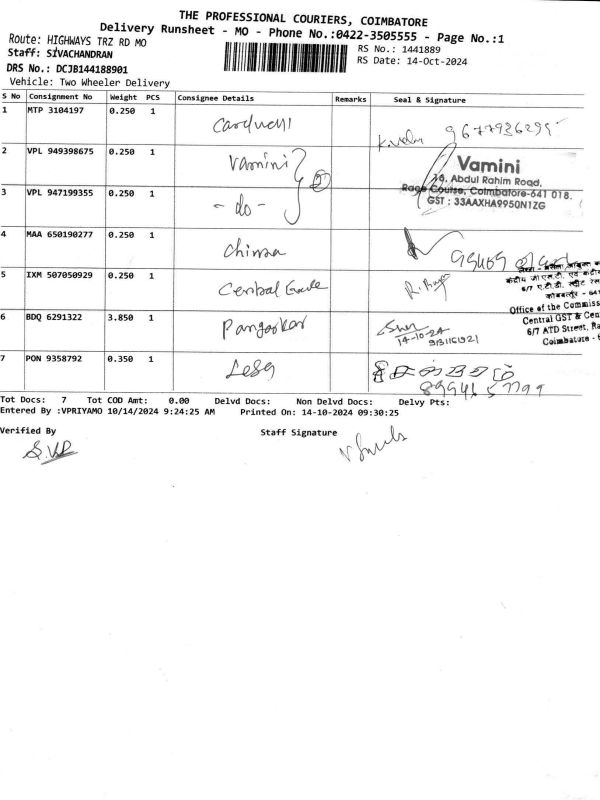 THE PROFESSIONAL COURIERS, COIMBATORE
Delivery Runsheet - MO - Phone No.:0422-3505555 - Page No.:1
Route: HIGHWAYS TRZ RD MO
RS No.: 1441889
Staff: SIVACHANDRAN
RS Date: 14-Oct-2024
DRS No.: DCJB144188901
Vehicle: Two Wheeler Delivery
S No Consignment No Weight PCS Consignee Details Remarks Seal & Signature
1 MTP 3104197 0.250 1
2 VPL 949398675 0.250 1 Vamini
Vamini
36, Abdul Rahim Road,
Race Course, Coimbatore-641 018.
GST : 33AAXHA9950N1ZG
3 VPL 947199355 0.250 1 - do -
4 MAA 650190277 0.250 1
5 IXM 507050929 0.250 1 Central
6/7 ए.टी.डी. स्ट्रीट
Office of the Commiss
Central GST & Cen
6/7 ATD Street, Ra
Coimbatore - 6
6 BDQ 6291322 3.850 1 Pangarkar
14-10-24
7 PON 9358792 0.350 1
Tot Docs: 7 Tot COD Amt: 0.00 Delvd Docs: Non Delvd Docs: Delvy Pts:
Entered By :VPRIYAMO 10/14/2024 9:24:25 AM Printed On: 14-10-2024 09:30:25
Verified By Staff Signature